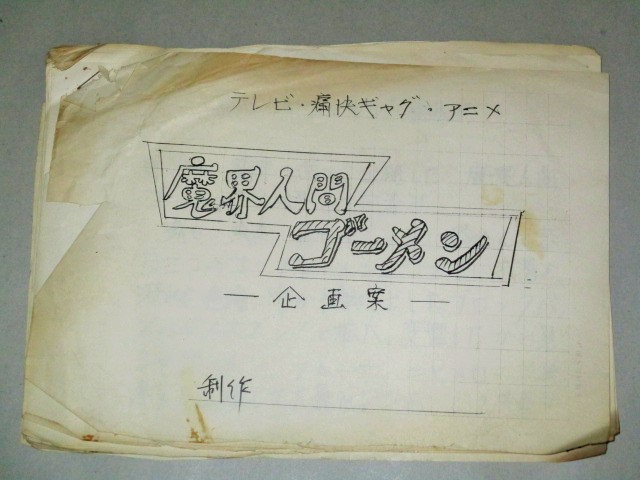 テレビ・痛快ギャグ・アニメ
魔界人間
ゴーメン
―企画案―
制作